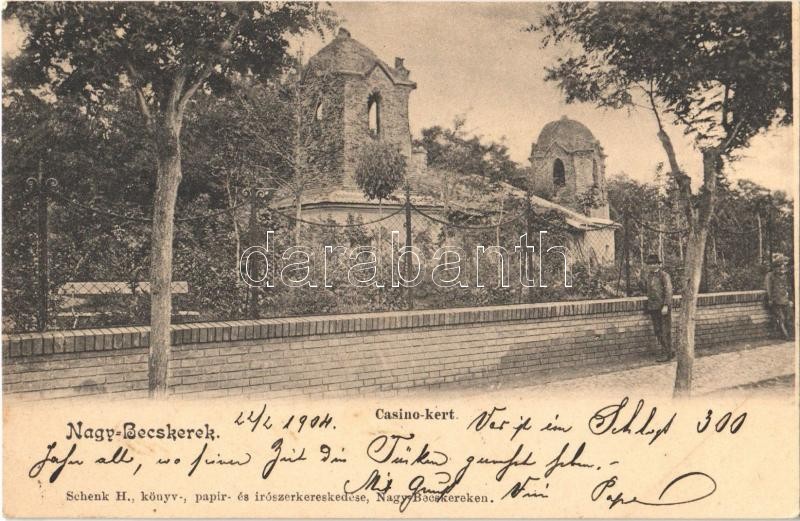 darabanth
Nagy-Becskerek.
22/2 1904.
Casino-kert.
ein Schloß 300
Jahr alt, wo seiner Zeit die Türken gehaust haben.-
Mit Gruß
Schenk H., könyv-, papir- és irószerkereskedése, Nagy-Becskereken.